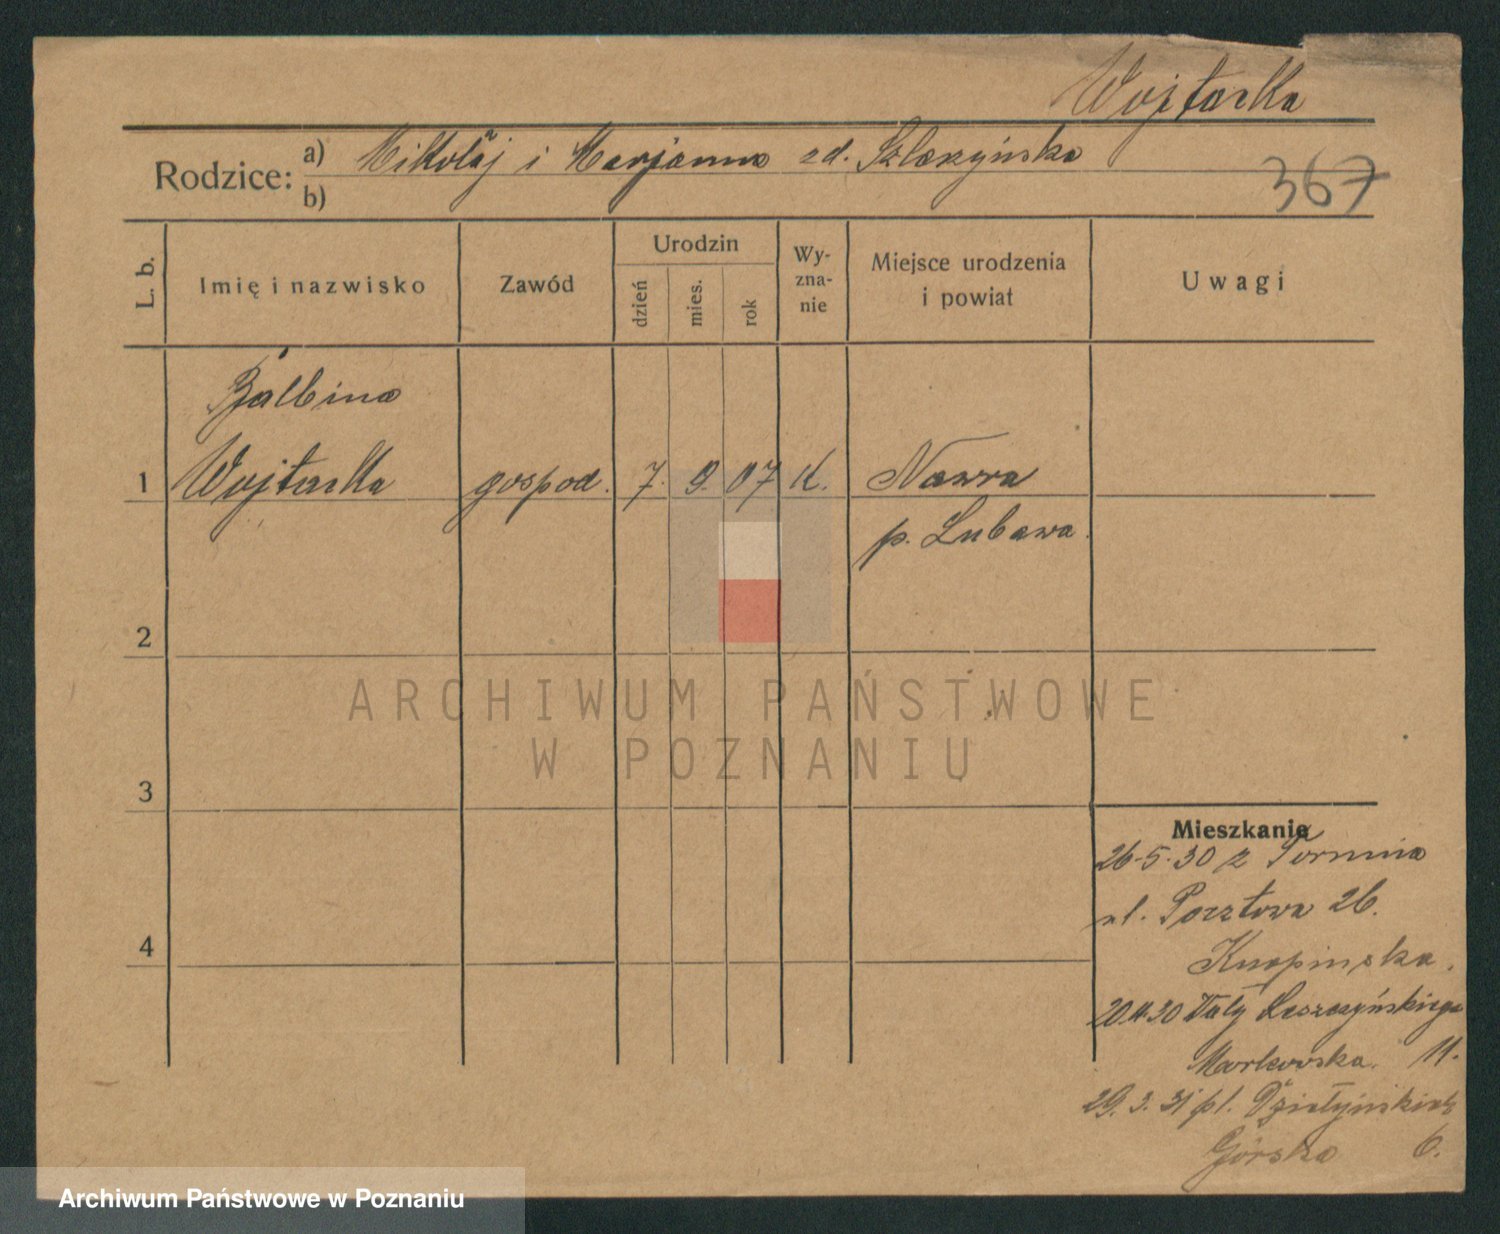 Wojtacka
Rodzice: a) Mikołaj i Marjanna zd.
b)
367
L. b.
Imię i nazwisko
Zawód
Urodzin
dzień
mies.
rok
Wy-
zna-
nie
Miejsce urodzenia
i powiat
Uwagi
Balbina
1 Wojtacka gospod. 7. 9. 07 K. Nawra
p. Lubawa.
2
3
4
ARCHIWUM PAŃSTWOWE
W POZNANIU
Mieszkanie
26-5-30 z Torunia
ul. Pocztowa 26.
Knapinska.
Wały Leszczyńskiego
Markowska. 11.
29. 3. 31 pl. Działyńskich
Górska 6.
Archiwum Państwowe w Poznaniu